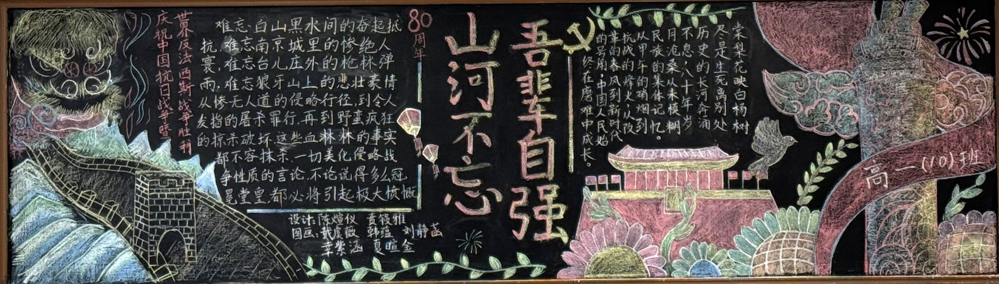 庆祝中国抗日战争暨
世界反法西斯战争胜利
80周年
难忘:白山黑水间的奋起抵
抗,难忘南京城里的惨绝人
寰,难忘台儿庄外的枪林弹
雨,难忘狼牙山上的悲壮豪情
从惨无人道的侵略行径,到令人
发指的屠杀罪行,再到野蛮疯狂
的掠杀破坏,这些血淋淋的事实
都不容抹杀,一切美化侵略战
争性质的言论,不论说得多么冠
冕堂皇,都必将引起极大愤慨
设计:陈煊仪
国画: 韩蕴 刘静
山河不忘
吾辈自强
棠梨花映白杨树
尽是生死离别处
历史的长河奔涌
不息,八十年岁
月沧桑从未模糊
民族的集体记忆
从甲午的硝烟到
抗战的烽火,从改
革的春风到新时代
的号角,中国人民始
终在磨难中成长。
高一(10)班